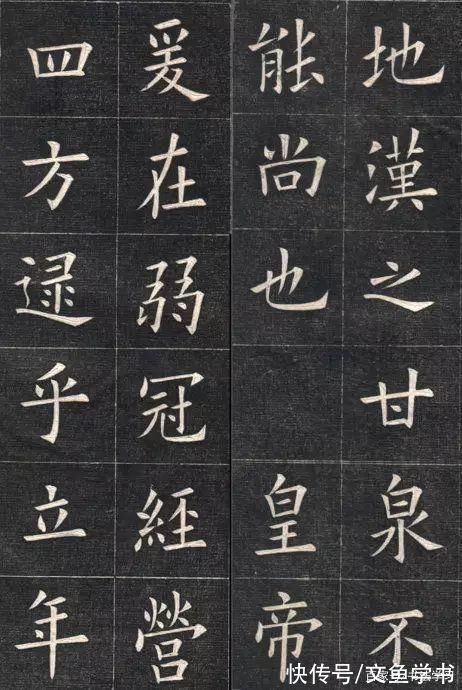 地漢之甘泉不
能尚也　皇帝
爰在弱冠經營
四方逮乎立年
快传号/文鱼学书